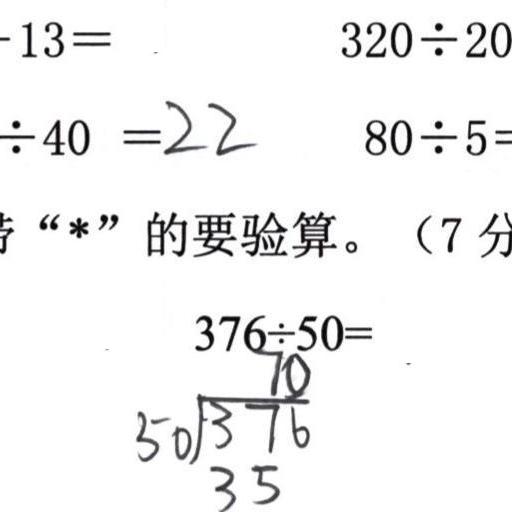 -13=
320÷20
÷40 =22
80÷5=
“*”的要验算。（7 分
376÷50=
70
50 376
35